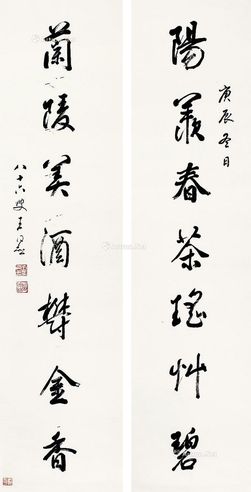 陽羨春茶瑤草碧
庚辰冬日
蘭陵美酒鬱金香
八十六叟王